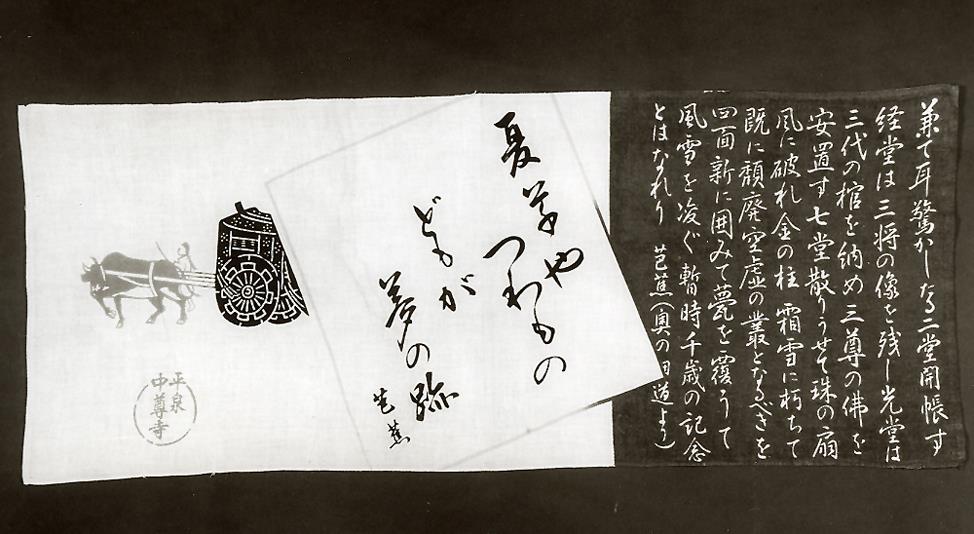 兼て耳驚かしたる二堂開帳す
経堂は三将の像を残し光堂は
三代の棺を納め三尊の佛を
安置す七堂散りうせて珠の扇
風に破れ金の柱 霜雪に朽ちて
既に頽廃空虚の叢となるべきを
四面新に囲みて甍を覆うて
風雪を凌ぐ暫時千歳の記念
とはなれり 芭蕉(奥の細道より)
夏草や
つわもの
どもが
夢の跡
芭蕉
平泉
中尊寺